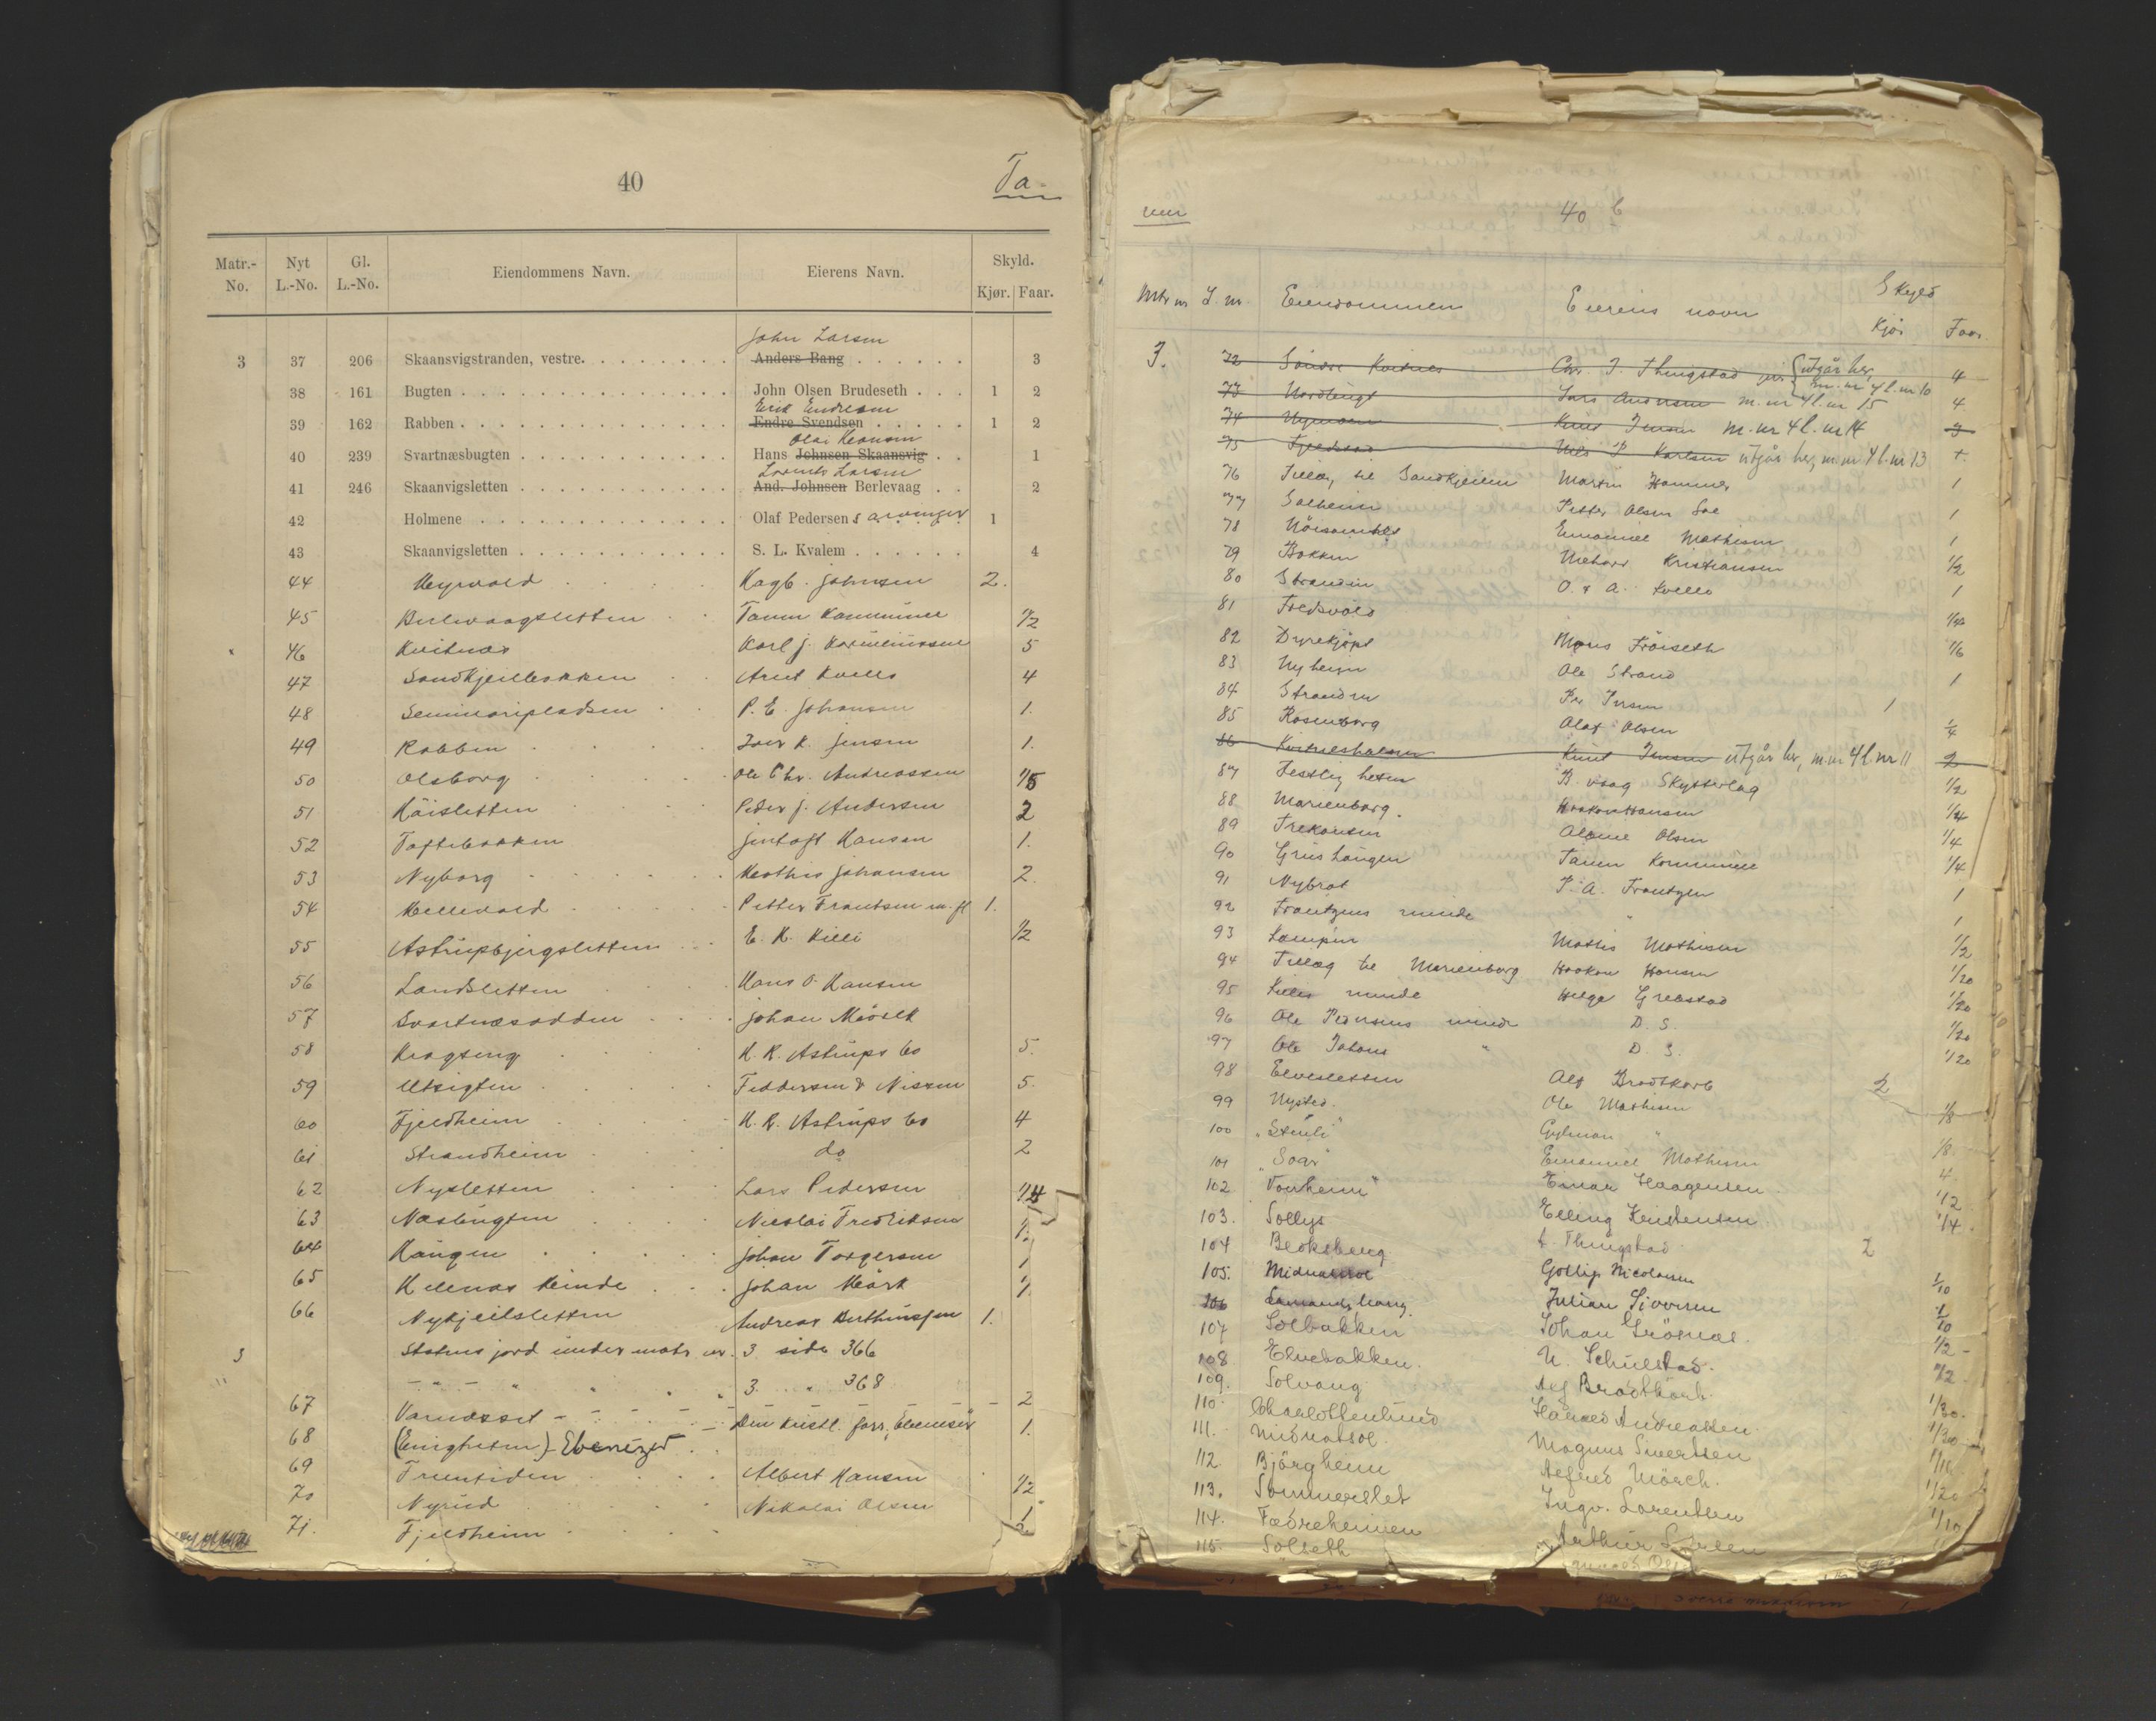 40
Ta-
Matr.-No. Nyt L.-No. Gl. L.-No. Eiendommens Navn. Eierens Navn. Skyld. Kjør. Faar.
John Larsen
3 37 206 Skaansvigstranden, vestre. Anders Bang 3
38 161 Bugten John Olsen Brudeseth 1 2
Erik Endresen
39 162 Rabben Endre Svendsen 1 2
Olai Hansen
40 239 Svartnæsbugten Hans Johnsen Skaansvig 1
Lorents Larsen
41 246 Skaanvigsletten And. Johnsen Berlevaag 2
42 Holmene Olaf Pedersens arvinger 1
43 Skaanvigsletten S. L. Kvalem 4
44 Hagb. Johnsen 2.
45 Berlevaagsletten Tanen Kommune 1/2
46 Kvitnæs Karl J. 5
47 Sandkjeilbakken Arnt Kvello 4
48 Seminaripladsen P. E. Johansen 1.
49 Rabben Iver K. Jensen 1.
50 Olsborg Ole Chr. Andreassen 1/5
51 Höisletten Peder J. Andersen 2
52 Toftebakken Jentoft Hansen 1.
53 Nyborg Mathis Johansen 2.
54 Peter Frantsen m. fl 1.
55 Astrupbjergsletten E. K. Killi 1/2
56 Landsletten Hans O. Hansen
57 Svartnæsodden Johan
58 H. R. Astrups bo 5.
59 Utsigten Feddersen & Nissen 5.
60 Fjeldheim H. R. Astrups bo 4
61 Strandheim do 2
62 Nysletten Lars Pedersen
63 Næsbugten Nicolai Fredriksen 1/2
64 Haugen Johan Torgersen 1
65 Helenas Minde Johan Mörk
66 Nykjeilsletten Andreas 1.
3 Statens jord under matr. nr. 3 side 366
" - " - " " " " 3. " 368
67 Varnæsset 2
68 (Enigheten) Ebenezer Den kristl. forr. Ebeneser 1.
69 Fremtiden Albert Hansen 1/2
70 Nyrud Nikolai Olsen 1
71. Fjeldheim
nen
40 b
Mtr nr L. nr. Eiendommen Eierens navn Skyld Kjør Faar.
3. 72 Søndre Kvitnes Chr. J. Thingstad utgår her, m. nr 4 l. nr 10 4
73 Nordbugt Lars Andersen m. nr 4 l. nr 15 4
74 Knut Jensen m. nr 4 l. nr 14 3
75 Fjeldstad Nils P. Karlsen utgår her, m. nr 4 l. nr 13
76 Tillæg til Sandkjeilen Martin Hammer 1
77 Solheim Petter Olsen Sae 1
78 Emanuel Mathisen 1
79 Bakken Kristiansen 1/2
80 Stranden O. & A. Kvello 1
81 Fredsvold
82 Dyrekjöpt Mons Fröiseth 1/6
83 Nyheim Ole Strand 1
84 Stranden Per Jensen 1
85 Rosenborg Olaf Olsen 1/4
86 Kvitnesholmen Knut Jensen utgår her, m. nr 4 l. nr 11 2
87 Festligheten B. vaag Skytterlag 1/2
88 Marienborg. Haakon Hansen 1/4
89 Trekanten Olsen 1/4
90 Grushaugen Tanen Kommune 1/4
91 Nybrot P. A. Frantzen 1
92 Frantzens minde " 1
93 Mathis Mathisen 1/2
94 Tillæg til Marienborg Haakon Hansen 1/20
95 Killis minde Helge Grebstad 1/20
96 Ole Pedersens minde D. S. 1/20
97 Ole Johans " D. S. 1/20
98 Elvesletten Alf Bradtkorb 2
99 Nysted. Ole Mathisen 1/8
100 1/8
101 "Soar" Emanuel Mathisen 4
102 Vonheim" Einar Haagensen 1/2
103. Sollys Elling Kristensen 1/4.
104 Bloksberg Thingstad 2
105. Midnatsol Gotlip Nicolaisen 1/10
106 Julian Sivertsen
107 Solbakken Johan Grösnæs. 1/2
108 Elvebakken. N. Schulstad.
109. Solvang Alf Bradtkorb. 1/30.
110. Charlottenlund Harald Andreassen. 1/30
111. Midnatsol. Magnus Sivertsen 1/10
112. Björgheim Alfred Mörch. 1/20
113. Sommerslet Ingv. Lorentsen 1/10
114. Fædreheimen Arthur
115. Solseth